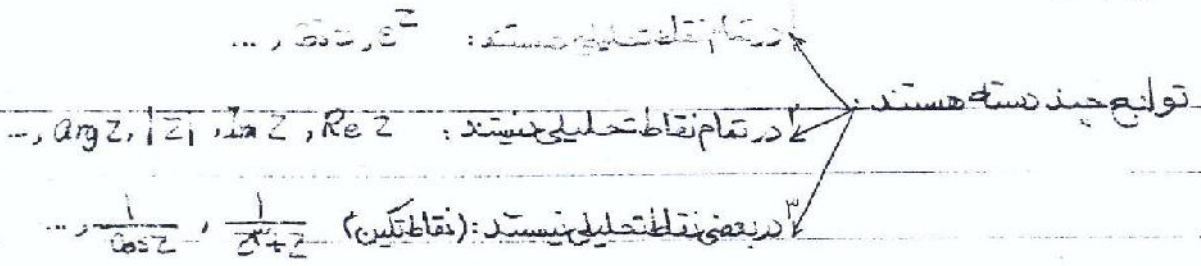 توابع چند دسته هستند:
۱) در تمام نقاط تحلیلی هستند: e^z , Cos z , ...
۲) در تمام نقاط تحلیلی نیستند: Re z , Im z , |z| , arg z , ...
۳) در بعضی نقاط تحلیلی نیستند: (نقاط تکین) 1/(z^۳+z) , 1/Cos z , ...